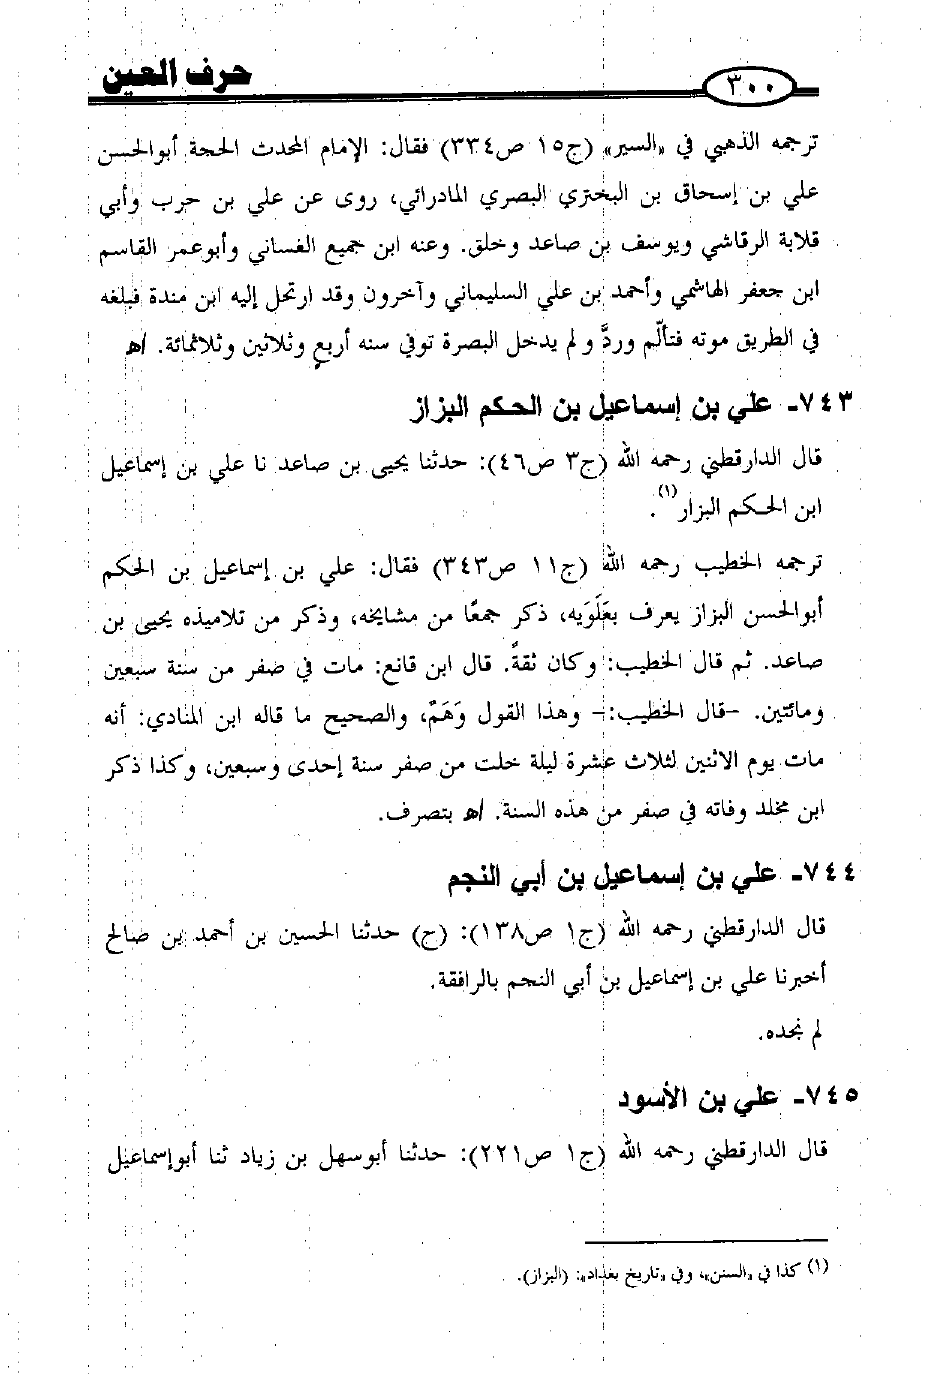 حرف العين
٣٠٠
ترجمه الذهبي في «السير» (ج١٥ ص٣٣٤) فقال: الإمام المحدث الحجة أبوالحسن
علي بن إسحاق بن البختري البصري المادرائي، روى عن علي بن حرب وأبي
قلابة الرقاشي ويوسف بن صاعد وخلق. وعنه ابن جميع الغساني وأبوعمر القاسم
ابن جعفر الهاشمي وأحمد بن علي السليماني وآخرون وقد ارتحل إليه ابن مندة فبلغه
في الطريق موته فتألّم وردَّ و لم يدخل البصرة توفي سنه أربعٍ وثلاثين وثلاثمائة. اﻫ
٧٤٣- علي بن إسماعيل بن الحكم البزاز
قال الدارقطني رحمه الله (ج٣ ص٤٦): حدثنا يحيى بن صاعد نا علي بن إسماعيل
ابن الحكم البزار(١).
ترجمه الخطيب رحمه الله (ج١١ ص٣٤٣) فقال: علي بن إسماعيل بن الحكم
أبوالحسن البزاز يعرف بعَلَوَيه، ذكر جمعًا من مشايخه، وذكر من تلاميذه يحيى بن
صاعد. ثم قال الخطيب: وكان ثقةً. قال ابن قانع: مات في صفر من سنة سبعين
ومائتين. -قال الخطيب:- وهذا القول وَهَمٌ، والصحيح ما قاله ابن المنادي: أنه
مات يوم الاثنين لثلاث عشرة ليلة خلت من صفر سنة إحدى وسبعين، وكذا ذكر
ابن مخلد وفاته في صفر من هذه السنة. اﻫ بتصرف.
٧٤٤- علي بن إسماعيل بن أبي النجم
قال الدارقطني رحمه الله (ج١ ص١٣٨): (ح) حدثنا الحسين بن أحمد بن صالح
أخبرنا علي بن إسماعيل بن أبي النجم بالرافقة.
لم نجده.
٧٤٥- علي بن الأسود
قال الدارقطني رحمه الله (ج١ ص٢٢١): حدثنا أبوسهل بن زياد ثنا أبوإسماعيل
(١) كذا في «السنن»، وفي «تاريخ بغداد»: (البزاز).